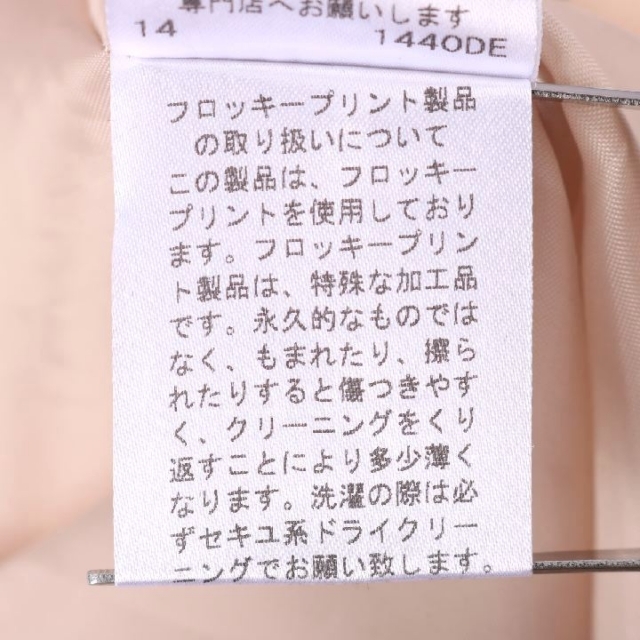 専門店へお願いします
14 1440DE
フロッキープリント製品
の取り扱いについて
この製品は、フロッキー
プリントを使用しており
ます。フロッキープリン
ト製品は、特殊な加工品
です。永久的なものでは
なく、もまれたり、擦ら
れたりすると傷つきやす
く、クリーニングをくり
返すことにより多少薄く
なります。洗濯の際は必
ずセキユ系ドライクリー
ニングでお願い致します。